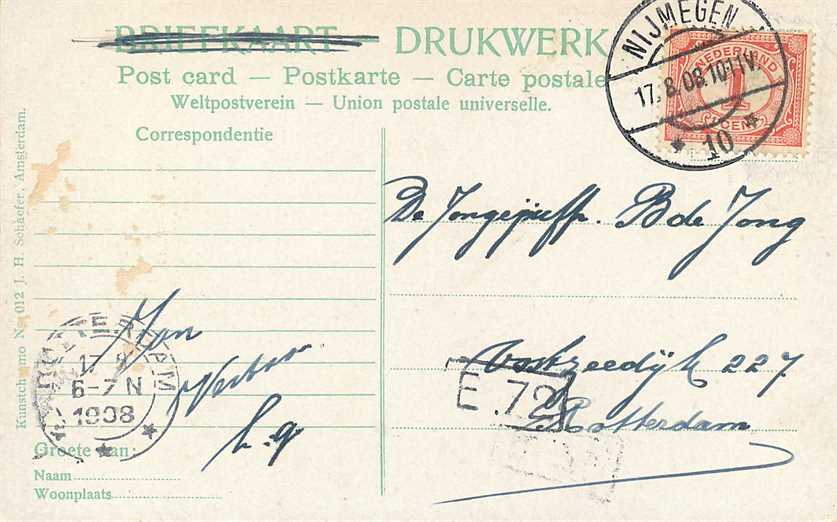 BRIEFKAART — DRUKWERK
Post card — Postkarte — Carte postale
Weltpostverein — Union postale universelle.
NIJMEGEN
17.8.08.
10
NEDERLAND
1
CENT
Correspondentie
Kunstchromo No. 012 J. H. Schaefer, Amsterdam.
De Jongejuffr. B de Jong
227
Rotterdam
E.72
AMSTERDAM
17 8
6-7 N
1908
Groete aan:
Naam
Woonplaats